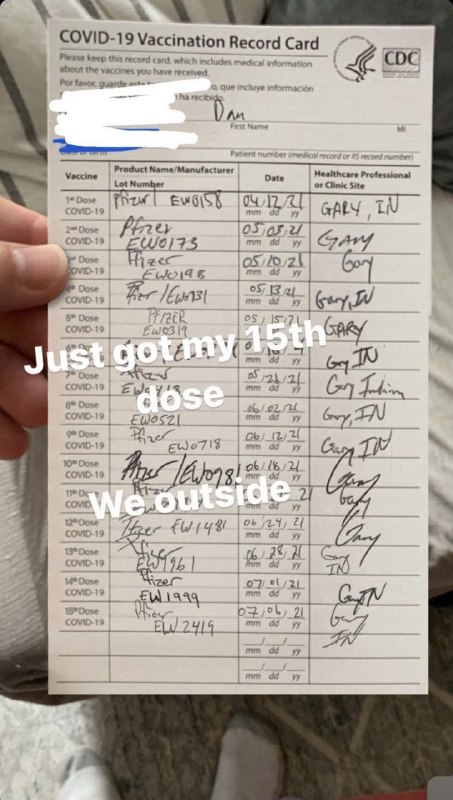 COVID-19 Vaccination Record Card
CDC
Please keep this record card, which includes medical information
about the vaccines you have received.
Por favor, guarde esta o, que incluye información
ha recibido.
Dan
First Name MI
Patient number (medical record or IIS record number)
Vaccine Product Name/Manufacturer Date Healthcare Professional
Lot Number or Clinic Site
1st Dose Pfizer EW0158 04/12/21 GARY, IN
COVID-19 mm dd yy
2nd Dose Pfizer 05/03/21 Gary
COVID-19 EW0173 mm dd yy
Dose Pfizer 05/10/21 Gary
OVID-19 EW0198 mm dd yy
Dose Pfizer/EW0231 05/13/21 Gary, IN
COVID-19 mm dd yy
5th Dose PFIZER 05/15/21 GARY
COVID-19 EW0319 mm dd yy
Just got my 15th
dose
Gary IN
mm dd yy
Pfizer 05 21 21 Gary Indiana
COVID-19 mm dd yy
8th Dose 06/02/21 Gary, IN
COVID-19 EW0521 mm dd yy
9th Dose Pfizer 06/12/21 Gary IN
COVID-19 EW0718 mm dd yy
10th Dose Pfizer/EW0981 06/18/21 Gary
COVID-19 mm dd yy
We outside
11th Dose 21 Gary
mm dd yy
12th Dose Pfizer EW1481 06/24/21 Gary
COVID-19 mm dd yy
13th Dose Pfizer 06/28/21 Gary
COVID-19 EW1961 mm dd yy IN
14th Dose Pfizer 07/01/21 Gary IN
COVID-19 EW1999 mm dd yy
15th Dose Pfizer 07/06/21 Gary
COVID-19 EW2419 mm dd yy IN
mm dd yy
mm dd yy